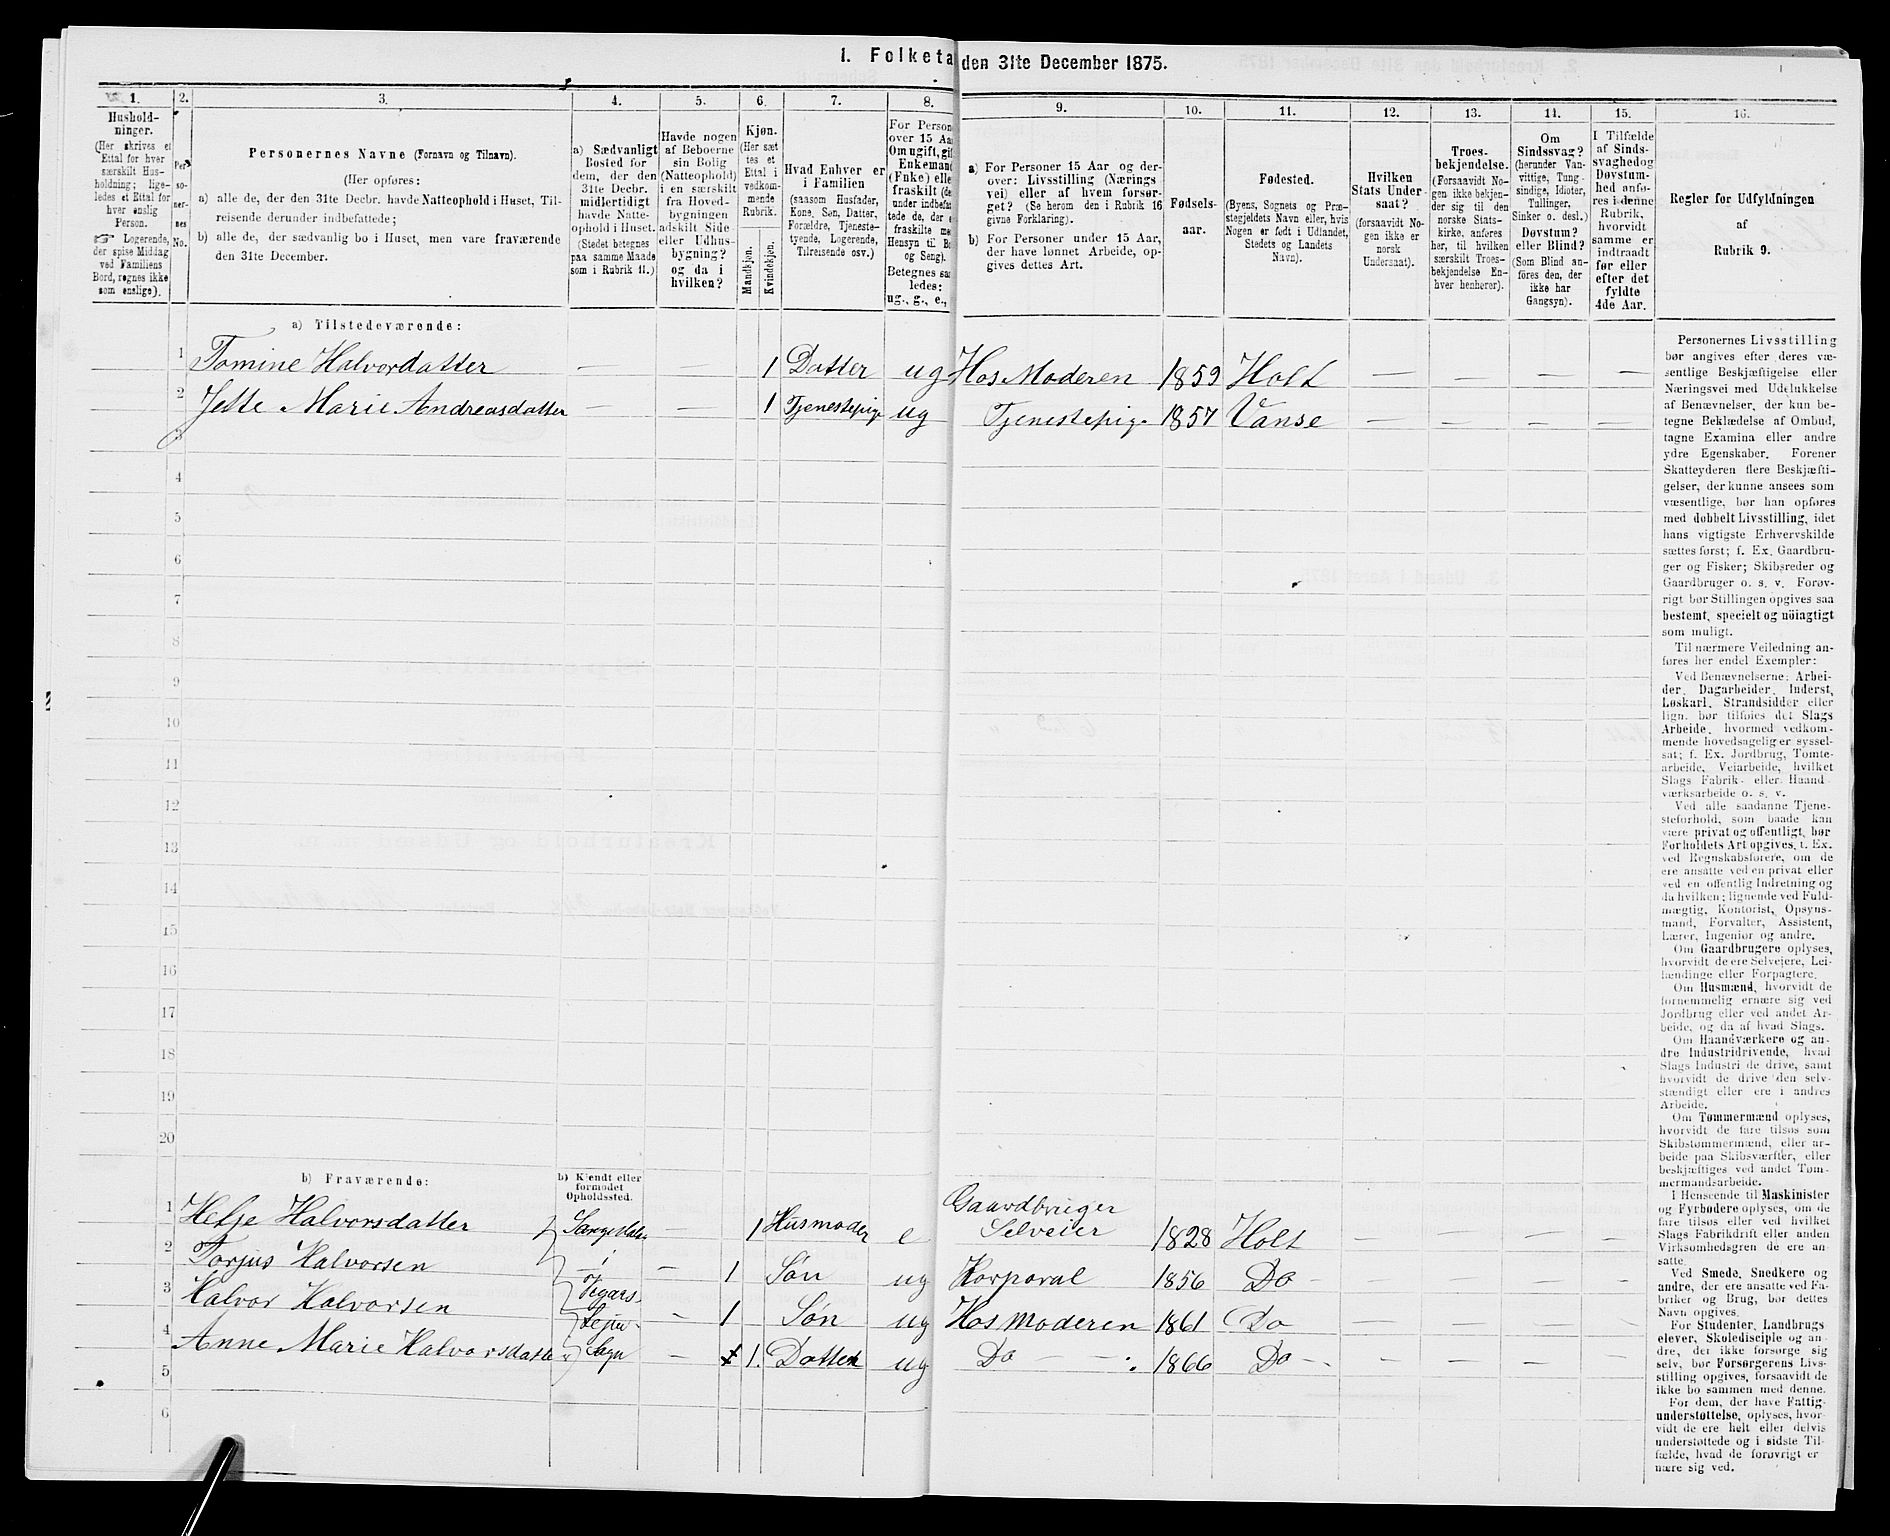 1. Folketa den 31te December 1875.
1. 2. 3. 4. 5. 6. 7. 8. 9. 10. 11. 12. 13. 14. 15. 16.
Hushold-
ninger.
(Her skrives et
Ettal for hver
særskilt Hus-
holdning; lige-
ledes et Ettal for
hver enslig
Person.
☞ Logerende,
der spise Middag
ved Familiens
Bord, regnes ikke
som enslige).
Per-
so-
ner-
nes
No.
Personernes Navne (Fornavn og Tilnavn).
(Her opføres:
a) alle de, der den 31te Decbr. havde Natteophold i Huset, Til-
reisende derunder indbefattede;
b) alle de, der sædvanlig bo i Huset, men vare fraværende
den 31te December.
a) Sædvanligt
Bosted for
dem, der den
31te Decbr.
midlertidigt
havde Natte-
ophold i Huset.
(Stedet betegnes
paa samme Maade
som i Rubrik 11.)
Havde nogen
af Beboerne
sin Bolig
(Natteophold)
i en særskilt
fra Hoved-
bygningen
adskilt Side-
eller Udhus-
bygning?
og da i
hvilken?
Kjøn.
(Her sæt
tes et
Ettal i
vedkom-
mende
Rubrik.
Mandkjøn.
Kvindekjøn.
Hvad Enhver er
i Familien
(saasom Husfader,
Kone, Søn, Datter,
Forældre, Tjeneste-
tyende, Logerende,
Tilreisende osv.)
For Person
over 15 Aa
Om ugift, gif
Enkemand
(Enke) elle
fraskilt (de
under indbefat-
tede de, der e
fraskilte me
Hensyn til Bo
og Seng).
Betegnes saa
ledes:
ug., g., e.,
a) For Personer 15 Aar og der-
over: Livsstilling (Nærings
vei) eller af hvem forsør-
get? (Se herom den i Rubrik 16
givne Forklaring).
b) For Personer under 15 Aar,
der have lønnet Arbeide, op-
gives dettes Art.
Fødsels-
aar.
Fødested.
(Byens, Sognets og Præ-
stegjeldets Navn eller, hvis
Nogen er født i Udlandet,
Stedets og Landets
Navn).
Hvilken
Stats Under-
saat?
(forsaavidt No-
gen ikke er
norsk
Undersaat).
Troes-
bekjendelse.
(Forsaavidt No-
gen ikke bekjen-
der sig til den
norske Stats-
kirke, anføres
her, til hvilken
særskilt Troes-
bekjendelse En-
hver henhører).
Om
Sindssvag?
(herunder Van-
vittige, Tung-
sindige, Idioter,
Tullinger,
Sinker o. desl.)
Døvstum?
eller Blind?
(Som Blind an-
føres den, der
ikke har
Gangsyn).
I Tilfælde
af Sinds-
svaghed og
Døvstum-
hed anfø-
res i denne
Rubrik,
hvorvidt
samme er
indtraadt
før eller
efter det
fyldte
4de Aar.
Regler for Udfyldningen
af
Rubrik 9.
a) Tilstedeværende:
1 Tomine Halvordatter — — 1 Datter ug Hos Moderen 1859 Holt — — — —
2 Jette Marie Andreasdatter — — 1 Tjenestepige ug Tjenestepige 1857 Vanse — — — —
3
4
5
6
7
8
9
10
11
12
13
14
15
16
17
18
19
20
b) Fraværende:
b) Kjendt eller
formodet
Opholdssted.
1 Helje Halvorsdatter — 1 Husmoder e Gaardbruger
Selveier 1828 Holt — — — —
2 Torjus Halvorsen — 1 Søn ug Korporal 1856 Do — — — —
3 Halvor Halvorsen — 1 Søn ug Hos Moderen 1861 Do — — — —
4 Anne Marie Halvorsdatter Sogn — 1. Datter ug Do 1866 Do — — — —
5
6
Personernes Livsstilling
bør angives efter deres væ-
sentlige Beskjæftigelse eller
Næringsvei med Udelukkelse
af Benævnelser, der kun be-
tegne Beklædelse af Ombud,
tagne Examina eller andre
ydre Egenskaber. Forener
Skatteyderen flere Beskjæfti-
gelser, der kunne ansees som
væsentlige, bør han opføres
med dobbelt Livsstilling, idet
hans vigtigste Erhvervskilde
sættes først; f. Ex. Gaardbru-
ger og Fisker; Skibsreder og
Gaardbruger o. s. v. Forøv-
rigt bør Stillingen opgives saa
bestemt, specielt og nöiagtigt
som muligt.
Til nærmere Veiledning an-
føres her endel Exempler:
Ved Benævnelserne: Arbei-
der, Dagarbeider, Inderst,
Løskarl, Strandsidder eller
lign. bør tilføies det Slags
Arbeide, hvormed vedkom-
mende hovedsagelig er syssel-
sat; f. Ex. Jordbrug, Tomte-
arbeide, Veiarbeide, hvilket
Slags Fabrik- eller Haand-
værksarbeide o. s. v.
Ved alle saadanne Tjene-
steforhold, som baade kan
være privat og offentligt, bør
Forholdets Art opgives, f. Ex.
ved Regnskabsførere, om de
ere ansatte ved en privat eller
ved en offentlig Indretning og
da hvilken; lignende ved Fuld-
mægtig, Kontorist, Opsyns-
mand, Forvalter, Assistent,
Lærer, Ingeniør og andre.
Om Gaardbrugere oplyses,
hvorvidt de ere Selveiere, Lei-
lændinge eller Forpagtere.
Om Husmænd, hvorvidt de
fornemmelig ernære sig ved
Jordbrug eller ved andet Ar-
beide, og da af hvad Slags.
Om Haandværkere og an-
dre Industridrivende, hvad
Slags Industri de drive, samt
hvorvidt de drive den selv-
stændigt eller ere i andres
Arbeide.
Om Tømmermænd oplyses,
hvorvidt de fare tilsøs som
Skibstømmermænd, eller ar-
beide paa Skibsværfter, eller
beskjæftiges ved andet Tøm-
mermandsarbeide.
I Henseende til Maskinister
og Fyrbødere oplyses, om de
fare tilsøs eller ved hvilket
Slags Fabrikdrift eller anden
Virksomhedsgren de ere an-
satte.
Ved Smede, Snedkere og
andre, der ere ansatte ved Fa-
briker og Brug, bør dettes
Navn opgives.
For Studenter, Landbrugs-
elever, Skoledisciple og an-
dre, der ikke forsørge sig
selv, bør Forsørgerens Livs-
stilling opgives, forsaavidt de
ikke bo sammen med denne.
For dem, der have Fattig-
understøttelse, oplyses, hvor-
vidt de ere helt eller delvis
understøttede og i sidste Til-
fælde, hvad de forøvrigt er-
nære sig ved.